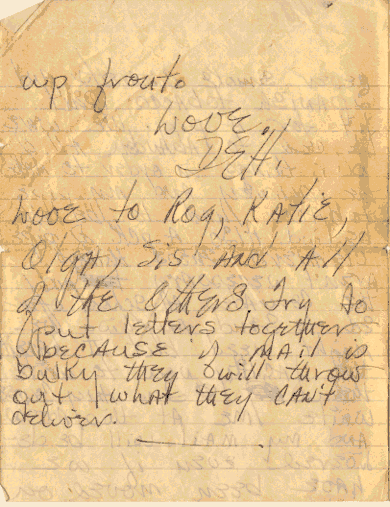 up front.
Love,
DEH.
Love to Rog, Katie,
Olga, Sis and All
of the Others Try to
put letters together
because if mail is
bulky they will throw
out what they CAN'T
deliver.